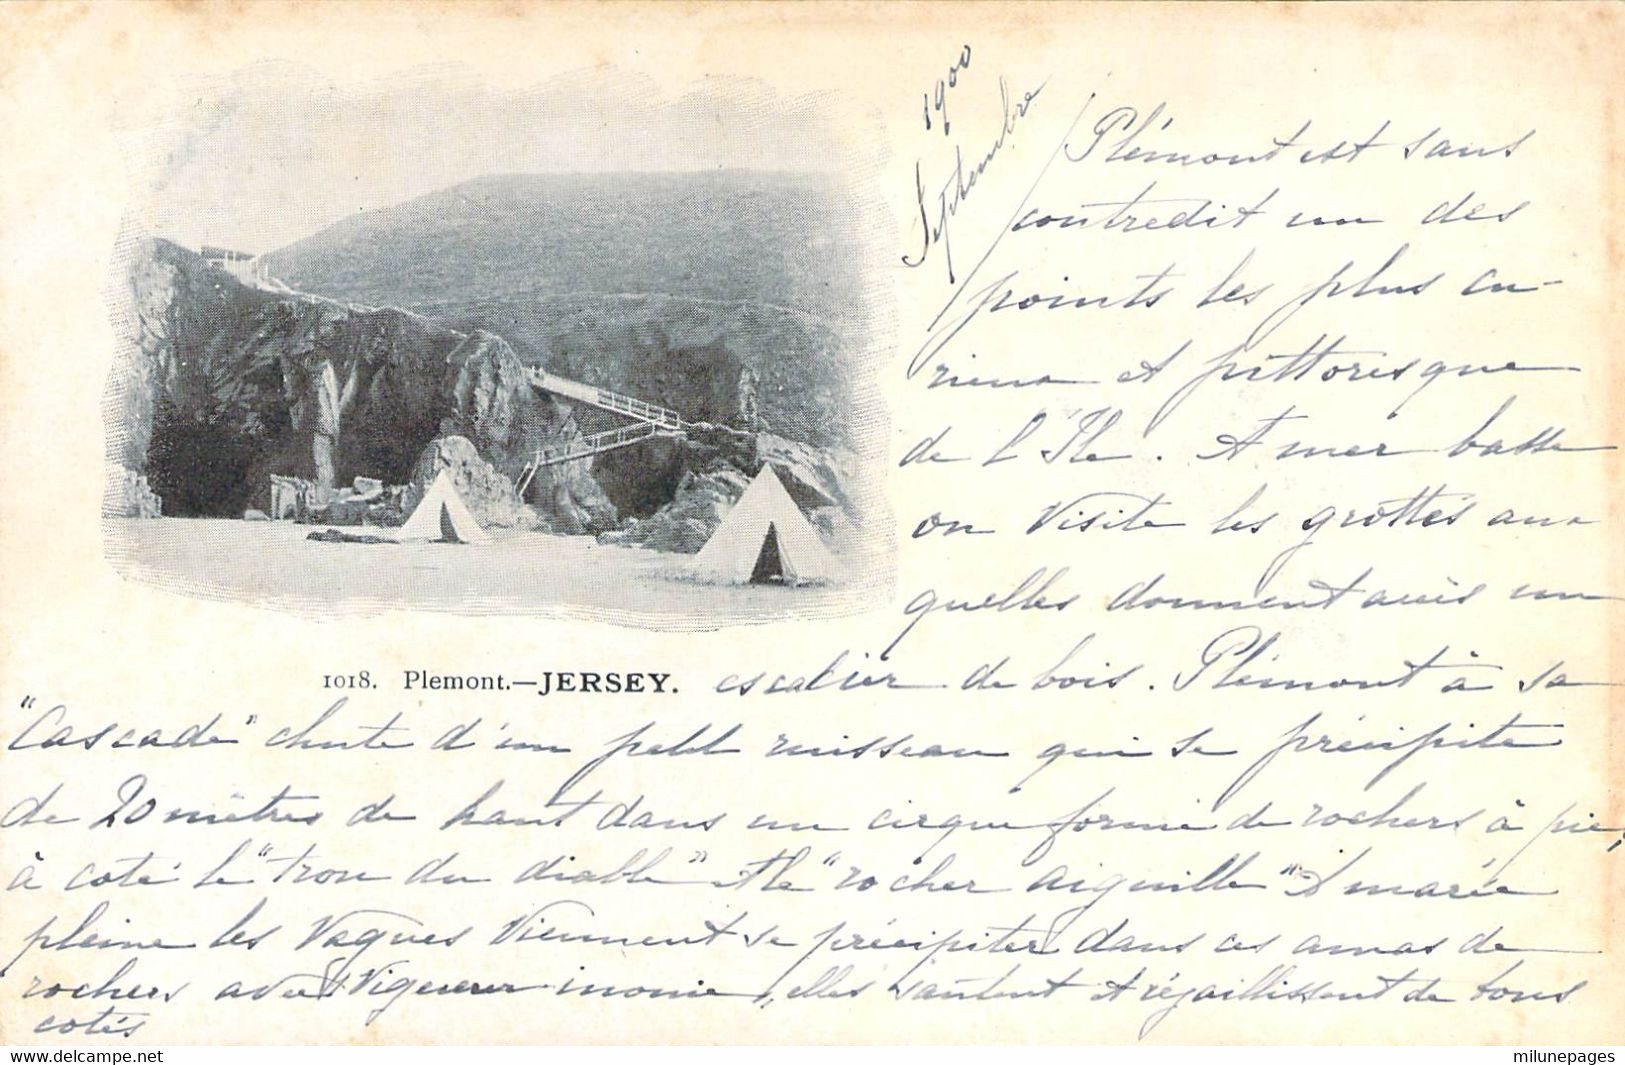 1900
Septembre
Plémont est sans
contredit un des
points les plus cu-
rieux et pittoresque
de l'Ile. A mer basse
on visite les grottes aux
quelles donnent accès un
1018. Plemont.—JERSEY. escalier de bois. Plémont à sa
"Cascade" chute d'un petit ruisseau qui se précipite
de 20 mètres de haut dans un cirque formé de rochers à pic,
à coté le "trou du diable" et le "rocher aiguille" A marée
pleine les vagues viennent se précipiter dans ces amas de
rochers avec vigueur inouie, elles sautent et réjaillissent de tous
cotés
delcampe.net
milunepages